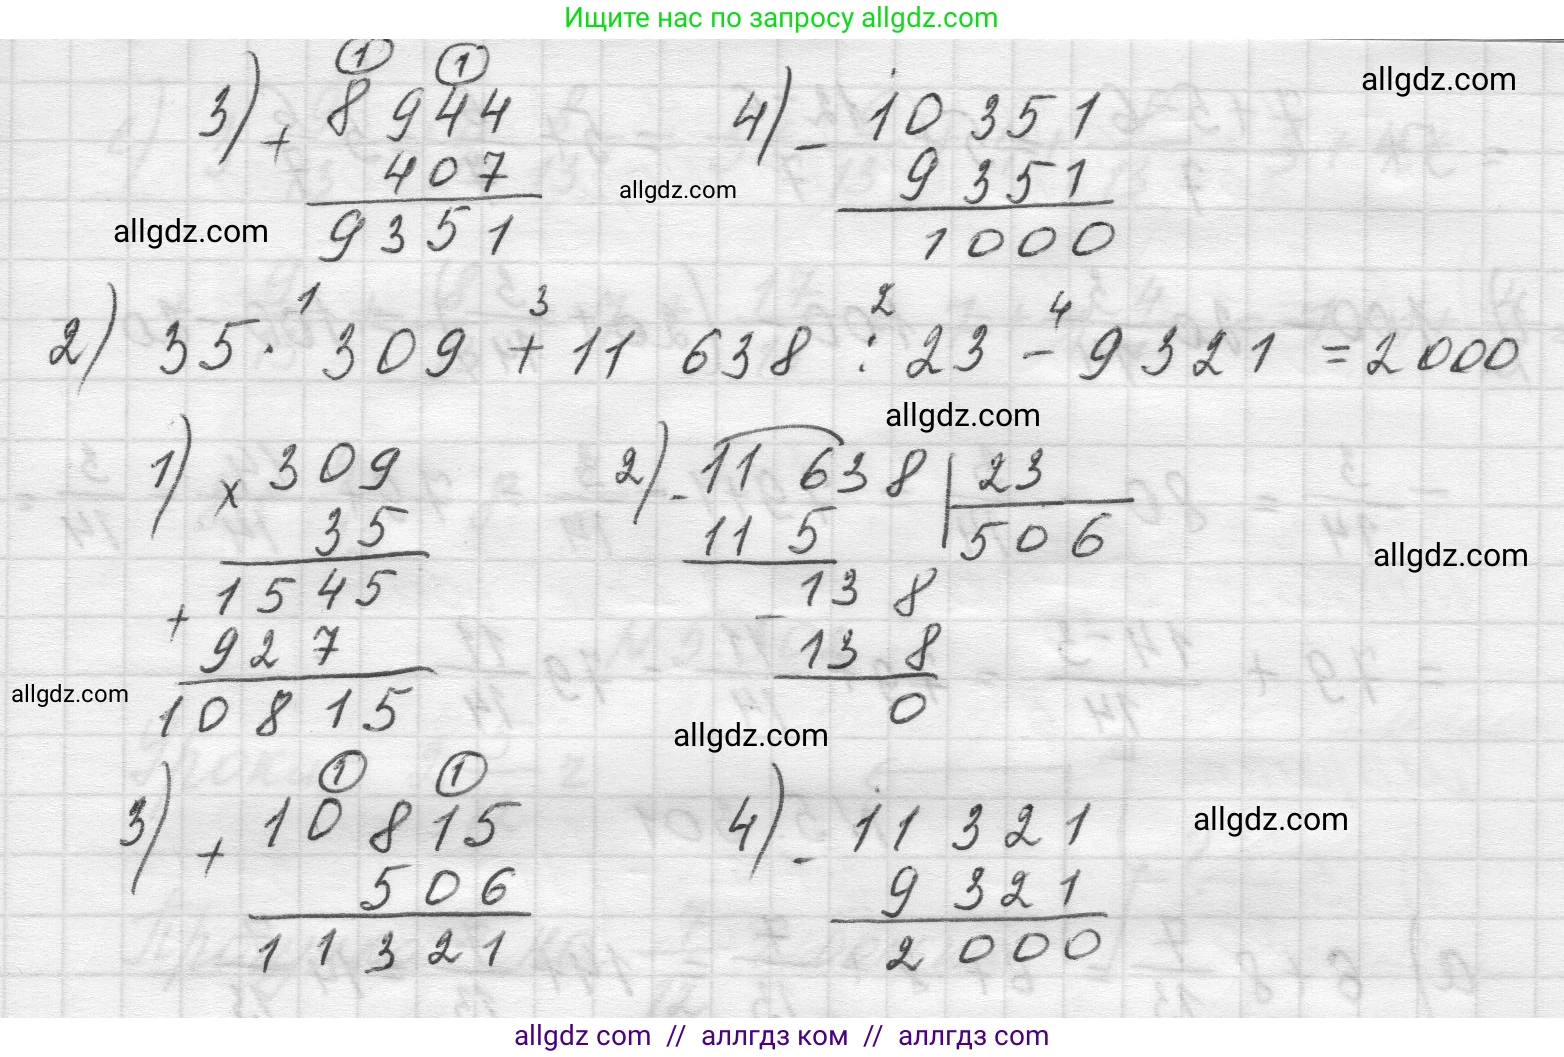 Ищите нас по запросу allgdz.com
allgdz.com
3) + 8944
407
9351
4) - 10351
9351
1000
allgdz.com
allgdz.com
2) 35 · 309 + 11 638 : 23 - 9321 = 2000
1 3 2 4
allgdz.com
1) x 309
35
+ 1545
927
10815
2) - 11 638 | 23
11 5 506
- 13 8
13 8
0
allgdz.com
allgdz.com
allgdz.com
3) + 10815
1 1
506
11321
4) - 11321
9321
2000
allgdz.com
allgdz com // аллгдз ком // аллгдз com